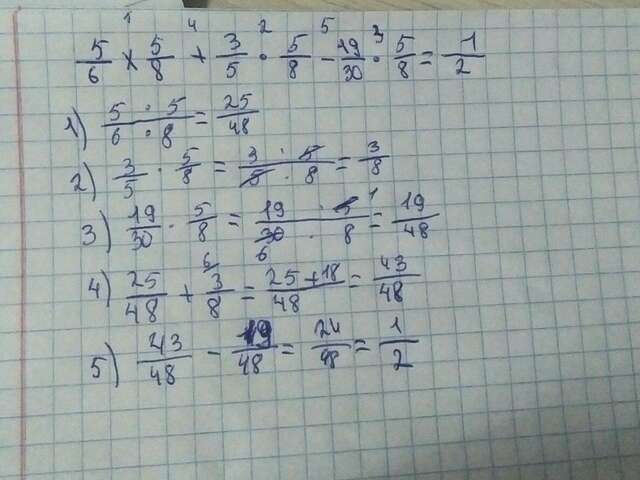 1 4 2 5 3
5/6 × 5/8 + 3/5 · 5/8 - 19/30 · 5/8 = 1/2
1) 5 · 5 / 6 · 8 = 25/48
2) 3/5 · 5/8 = 3 · 5 / 5 · 8 = 3/8
3) 19/30 · 5/8 = 19 · 5 1 / 30 6 · 8 = 19/48
4) 25/48 + 6/ 3/8 = 25+18/48 = 43/48
5) 43/48 - 19/48 = 24/48 = 1/2